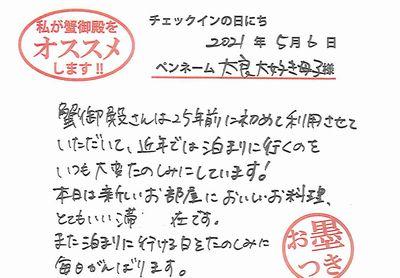 私が蟹御殿を
オススメ
します!!
チェックインの日にち
2021年5月6日
ペンネーム 太良大好き母子様
蟹御殿さんは25年前に初めて利用させて
いただいて、近年では泊まりに行くのを
いつも大変たのしみにしています!
本日は新しいお部屋においしいお料理、
とてもいい滞 在です。
また泊まりに行ける日をたのしみに
毎日がんばります。
お墨
つき